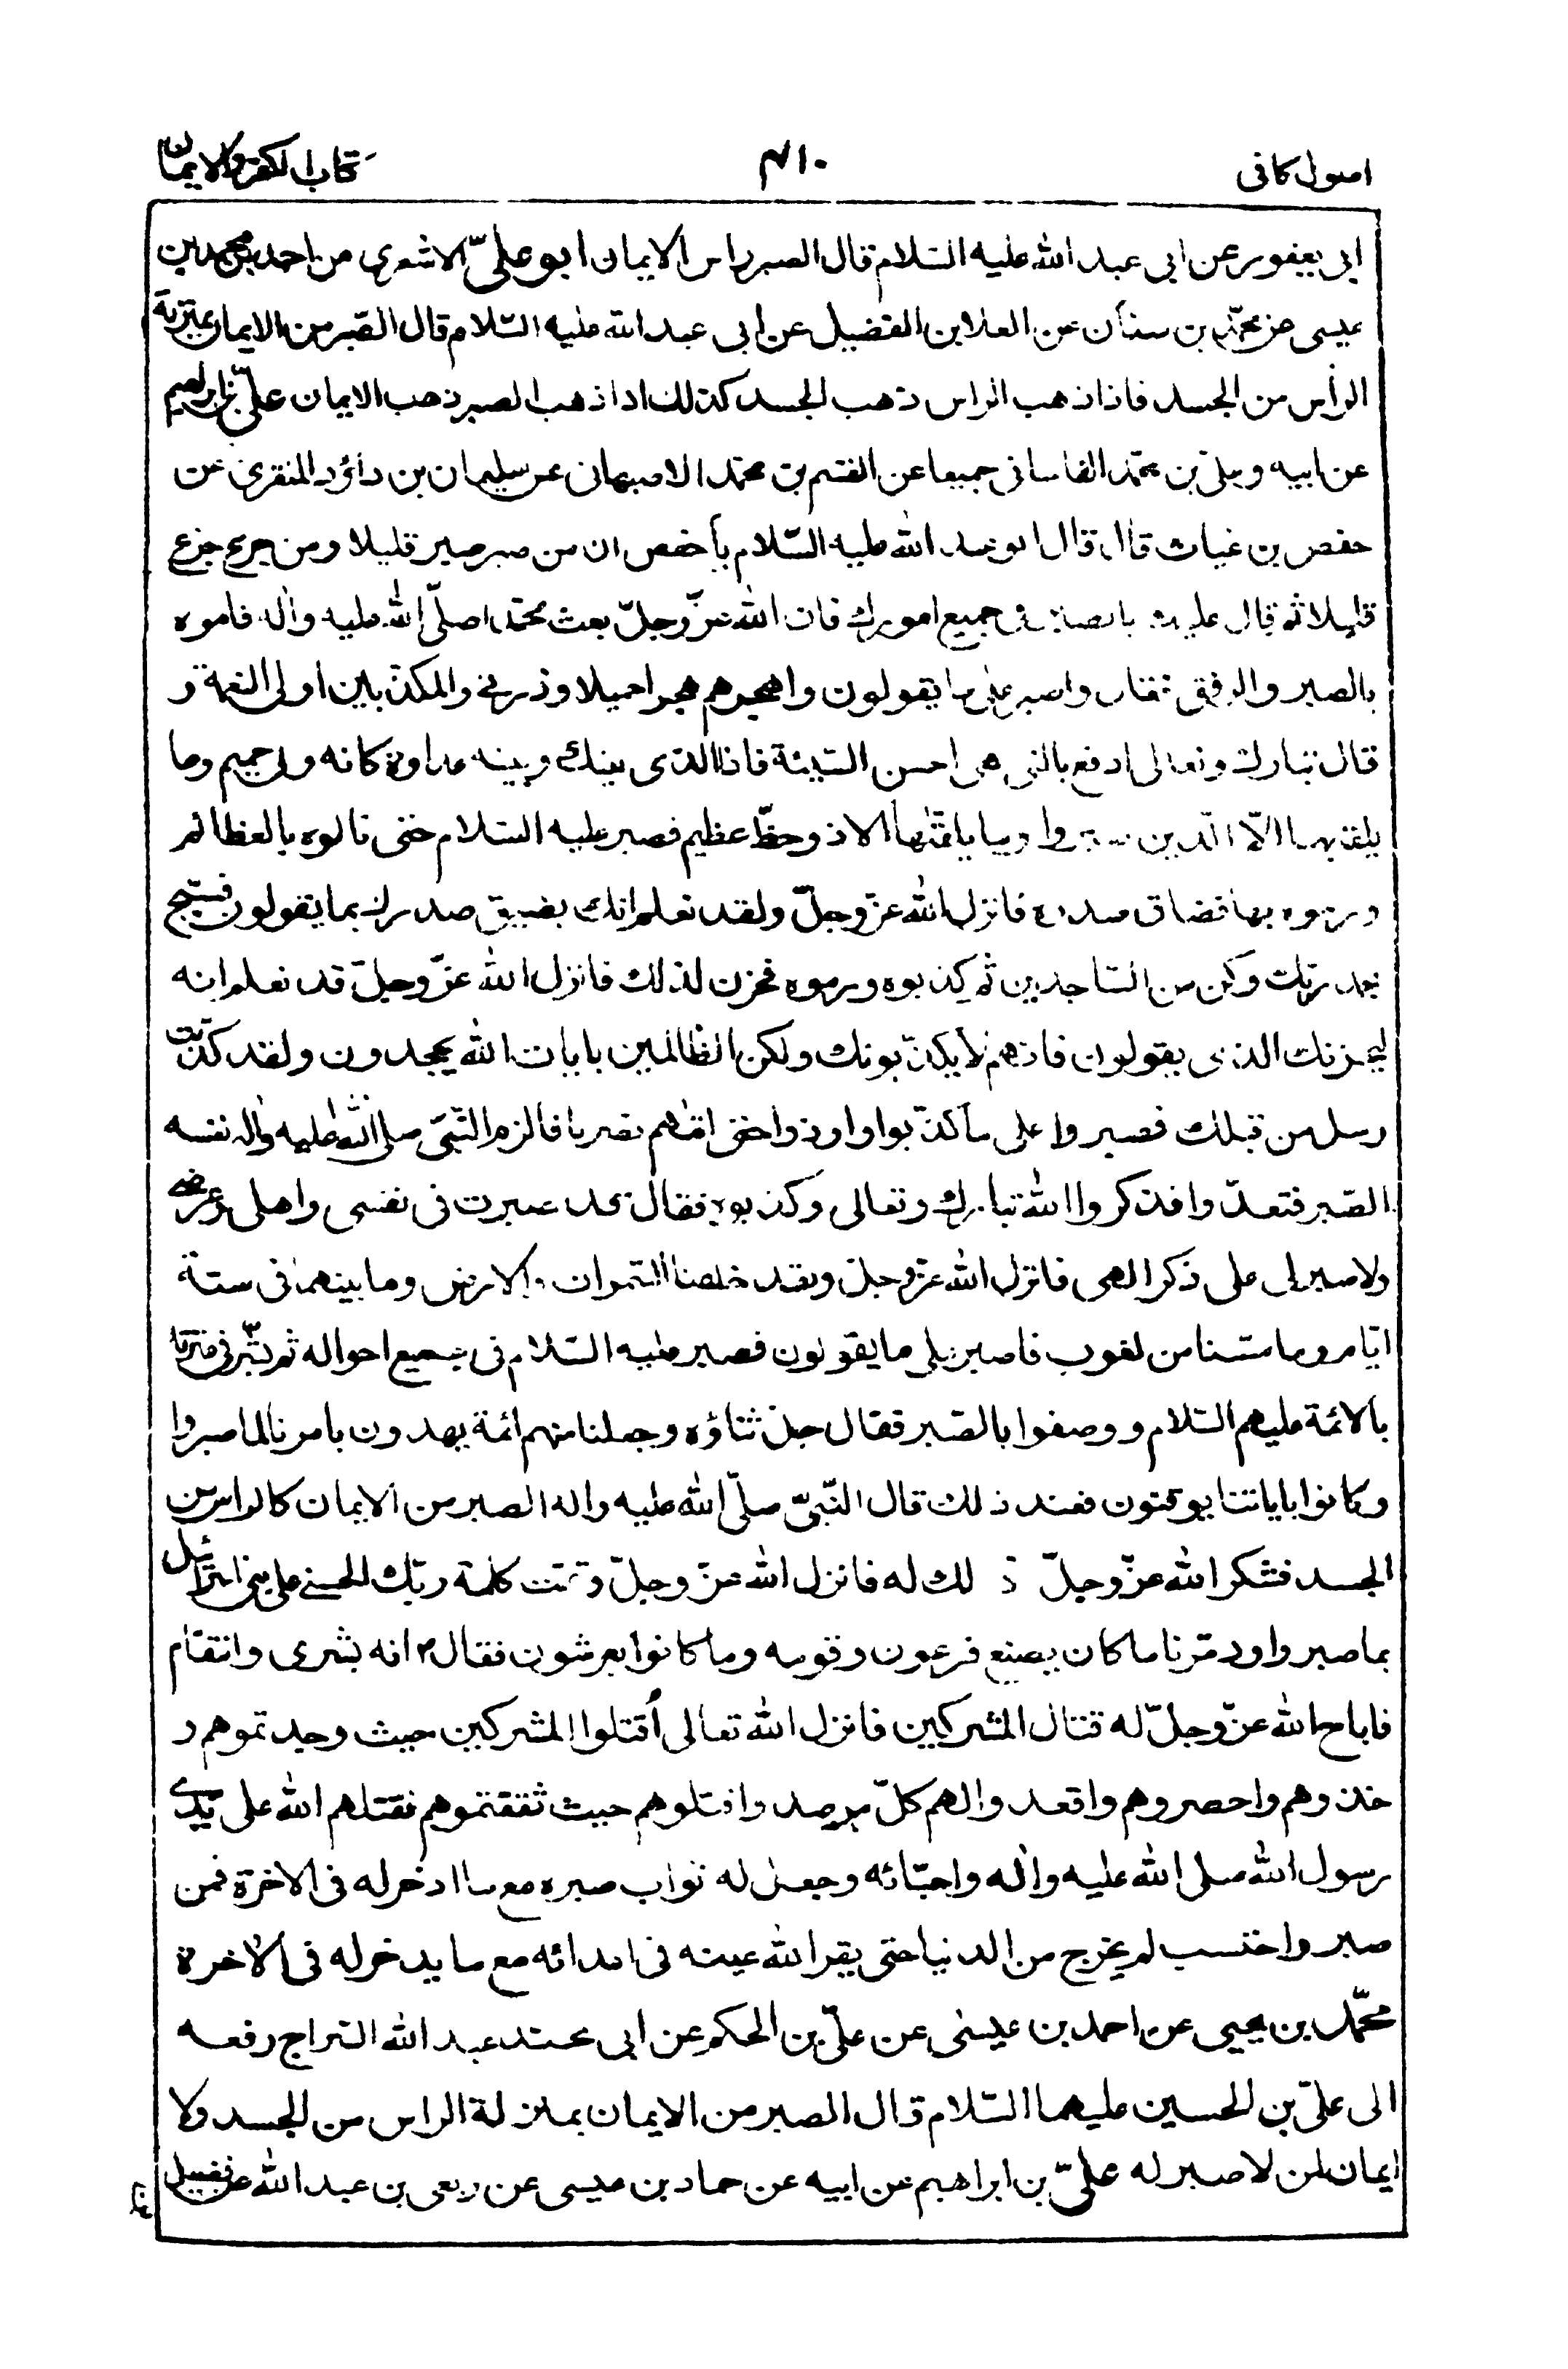 اصول كافى
٤١٠
كتاب الكفر والايمان
ابى يعفور عن ابى عبد الله عليه السّلام قال الصبر راس الايمان ابو علىّ الاشعرى عن احمد بن محمد بن
عيسى عن محمّد بن سنان عن العلا بن الفضيل عن ابى عبد الله عليه السّلام قال الصّبر من الايمان بمنزلة
الرأس من الجسد فاذا ذهب الراس ذهب الجسد كذلك اذا ذهب الصبر ذهب الايمان علىّ بن ابراهيم
عن ابيه وعلىّ بن محمّد القاسانى جميعا عن القسم بن محمّد الاصبهانى عن سليمان بن داؤد المنقرى عن
حفص بن غياث قال قال ابو عبد الله عليه السّلام يا حفص ان من صبر صبر قليلا ومن جزع جزع
قليلا ثم قال عليك بالصبر فى جميع امورك فان الله عزّ وجلّ بعث محمّدا صلّى الله عليه واله فامره
بالصبر والرفق فقال واصبر على ما يقولون واهجرهم هجرا جميلا وذرنى والمكذّبين اولى النعمة و
قال تبارك وتعالى ادفع بالتى هى احسن السّيئة فاذا الذى بينك وبينه عداوة كانه ولى حميم وما
يلقّيها الّا الّذين صبروا وما يلقّيها الا ذو حظّ عظيم فصبر عليه السّلام حتى نالوه بالعظائم
ورموه بها فضاق صدره فانزل الله عزّ وجلّ ولقد نعلم انك يضيق صدرك بما يقولون فسبّح
بحمد ربّك وكن من السّاجدين ثم كذبوه ورموه فحزن لذلك فانزل الله عزّ وجلّ قد نعلم انه
ليحزنك الذى يقولون فانهم لا يكذّبونك ولكن الظالمين بايات الله يجحدون ولقد كذّبت
رسل من قبلك فصبروا على ما كذّبوا واوذوا حتى اتٰهم نصرنا فالزم النّبىّ صلى الله عليه واله نفسه
الصّبر فتعدّوا فذكروا الله تبارك وتعالى وكذبوه فقال قد صبرت فى نفسى واهلى وعرضى
ولا صبر لى على ذكر الهى فانزل الله عزّ وجلّ ولقد خلقنا السّموات والارض وما بينهما فى ستة
ايّام وما مسّنا من لغوب فاصبر على ما يقولون فصبر عليه السّلام فى جميع احواله ثم بشّر فى عترته
بالائمة عليهم السّلام ووصفوا بالصّبر فقال جلّ ثناؤه وجعلنا منهم ائمة يهدون بامرنا لما صبروا
وكانوا باياتنا يوقنون فعند ذلك قال النّبىّ صلّى الله عليه واله الصبر من الايمان كالراس من
الجسد فشكر الله عزّ وجلّ ذلك له فانزل الله عزّ وجلّ وتمّت كلمة ربّك الحسنى على بنى اسرائيل
بما صبروا ودمّرنا ما كان يصنع فرعون وقومه وما كانوا يعرشون فقال ٣ انه بشرى وانتقام
فاباح الله عزّ وجلّ له قتال المشركين فانزل الله تعالى اُقتلوا المشركين حيث وجدتموهم و
خذوهم واحصروهم واقعدوا لهم كلّ مرصد واقتلوهم حيث ثقفتموهم فقتلهم الله على يدى
رسول الله صلى الله عليه واله واحبّائه وجعل له ثواب صبره مع ما ادخر له فى الاخرة فمن
صبر واحتسب لم يخرج من الدنيا حتى يقر الله عينه فى اعدائه مع ما يدخر له فى الاخرة
محمّد بن يحيى عن احمد بن عيسى عن علىّ بن الحكم عن ابى محمّد عبد الله السّراج رفعه
الى علىّ بن الحسين عليهما السّلام قال الصبر من الايمان بمنزلة الراس من الجسد ولا
ايمان لمن لا صبر له علىّ بن ابراهيم عن ابيه عن حماد بن عيسى عن ربعى بن عبد الله عن فضيل